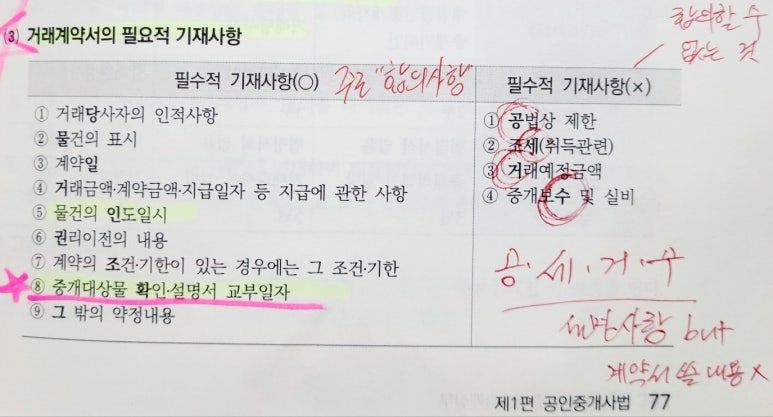 (3) 거래계약서의 필요적 기재사항
합의할 수
없는 것
필수적 기재사항(○) 주로 "합의사항"
필수적 기재사항(×)
① 거래당사자의 인적사항
② 물건의 표시
③ 계약일
④ 거래금액·계약금액·지급일자 등 지급에 관한 사항
⑤ 물건의 인도일시
⑥ 권리이전의 내용
⑦ 계약의 조건·기한이 있는 경우에는 그 조건·기한
⑧ 중개대상물 확인·설명서 교부일자
⑨ 그 밖의 약정내용
① 공법상 제한
② 조세(취득관련)
③ 거래예정금액
④ 중개보수 및 실비
공·세·거·수
설명사항 but
계약서 쓸 내용 X
제1편 공인중개사법 77